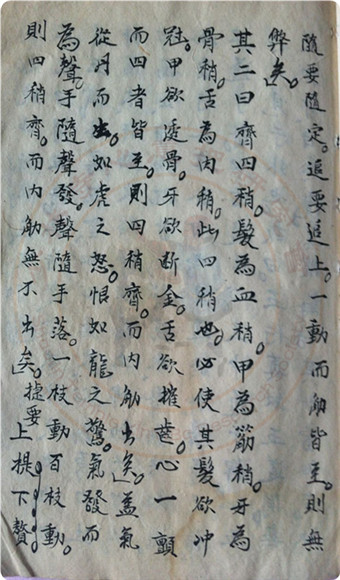 隨要隨定。追要追上。一動而觔皆至。則無
弊矣。
其二曰齊四稍。髮為血稍。甲為筋稍。牙為
骨稍。舌為肉稍。此四稍也。必使其髮欲冲
冠。甲欲透骨。牙欲断金。舌欲摧齒。心一顫
而四者皆至。則四稍齊。而内觔出矣。盖氣
從丹而出。如虎之怒恨。如龍之驚。氣發而
為聲。手隨聲發。聲隨手落。一枝動百枝動。
則四稍齊。而内觔無不出矣。捷要上提下贅。